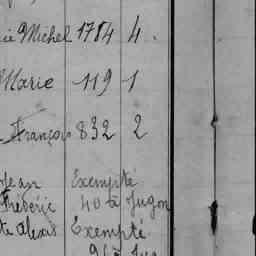 Michel 1784 4.
Marie 119 1
François 832 2
Jean Exempté
Frédéric 40 à Jugon
Alexis Exempté